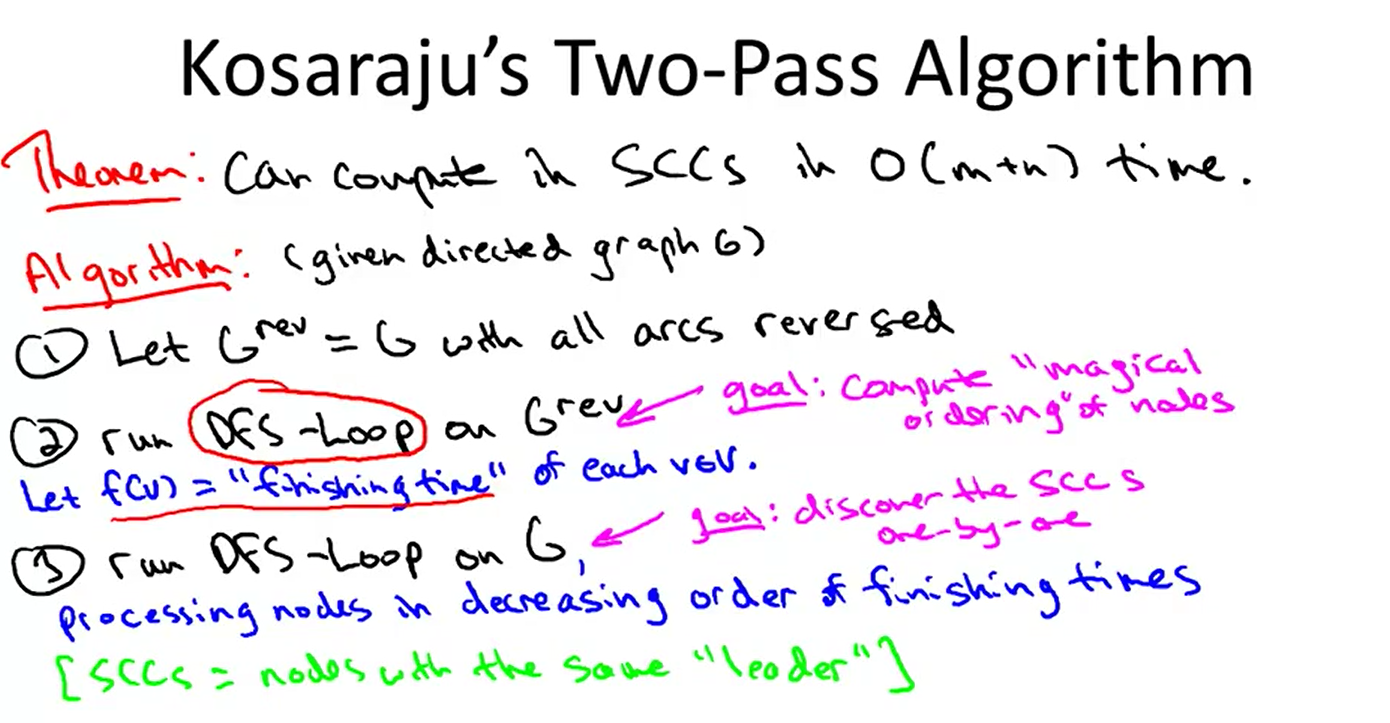 Kosaraju's Two-Pass Algorithm
Theorem: Can compute in SCCs in O(m+n) time.
Algorithm: (given directed graph G)
① Let G^rev = G with all arcs reversed
② run DFS-Loop on G^rev ← goal: compute "magical ordering" of nodes
Let f(v) = "finishing time" of each v∈V.
③ run DFS-Loop on G, ← goal: discover the SCCs one-by-one
processing nodes in decreasing order of finishing times
[SCCs = nodes with the same "leader"]